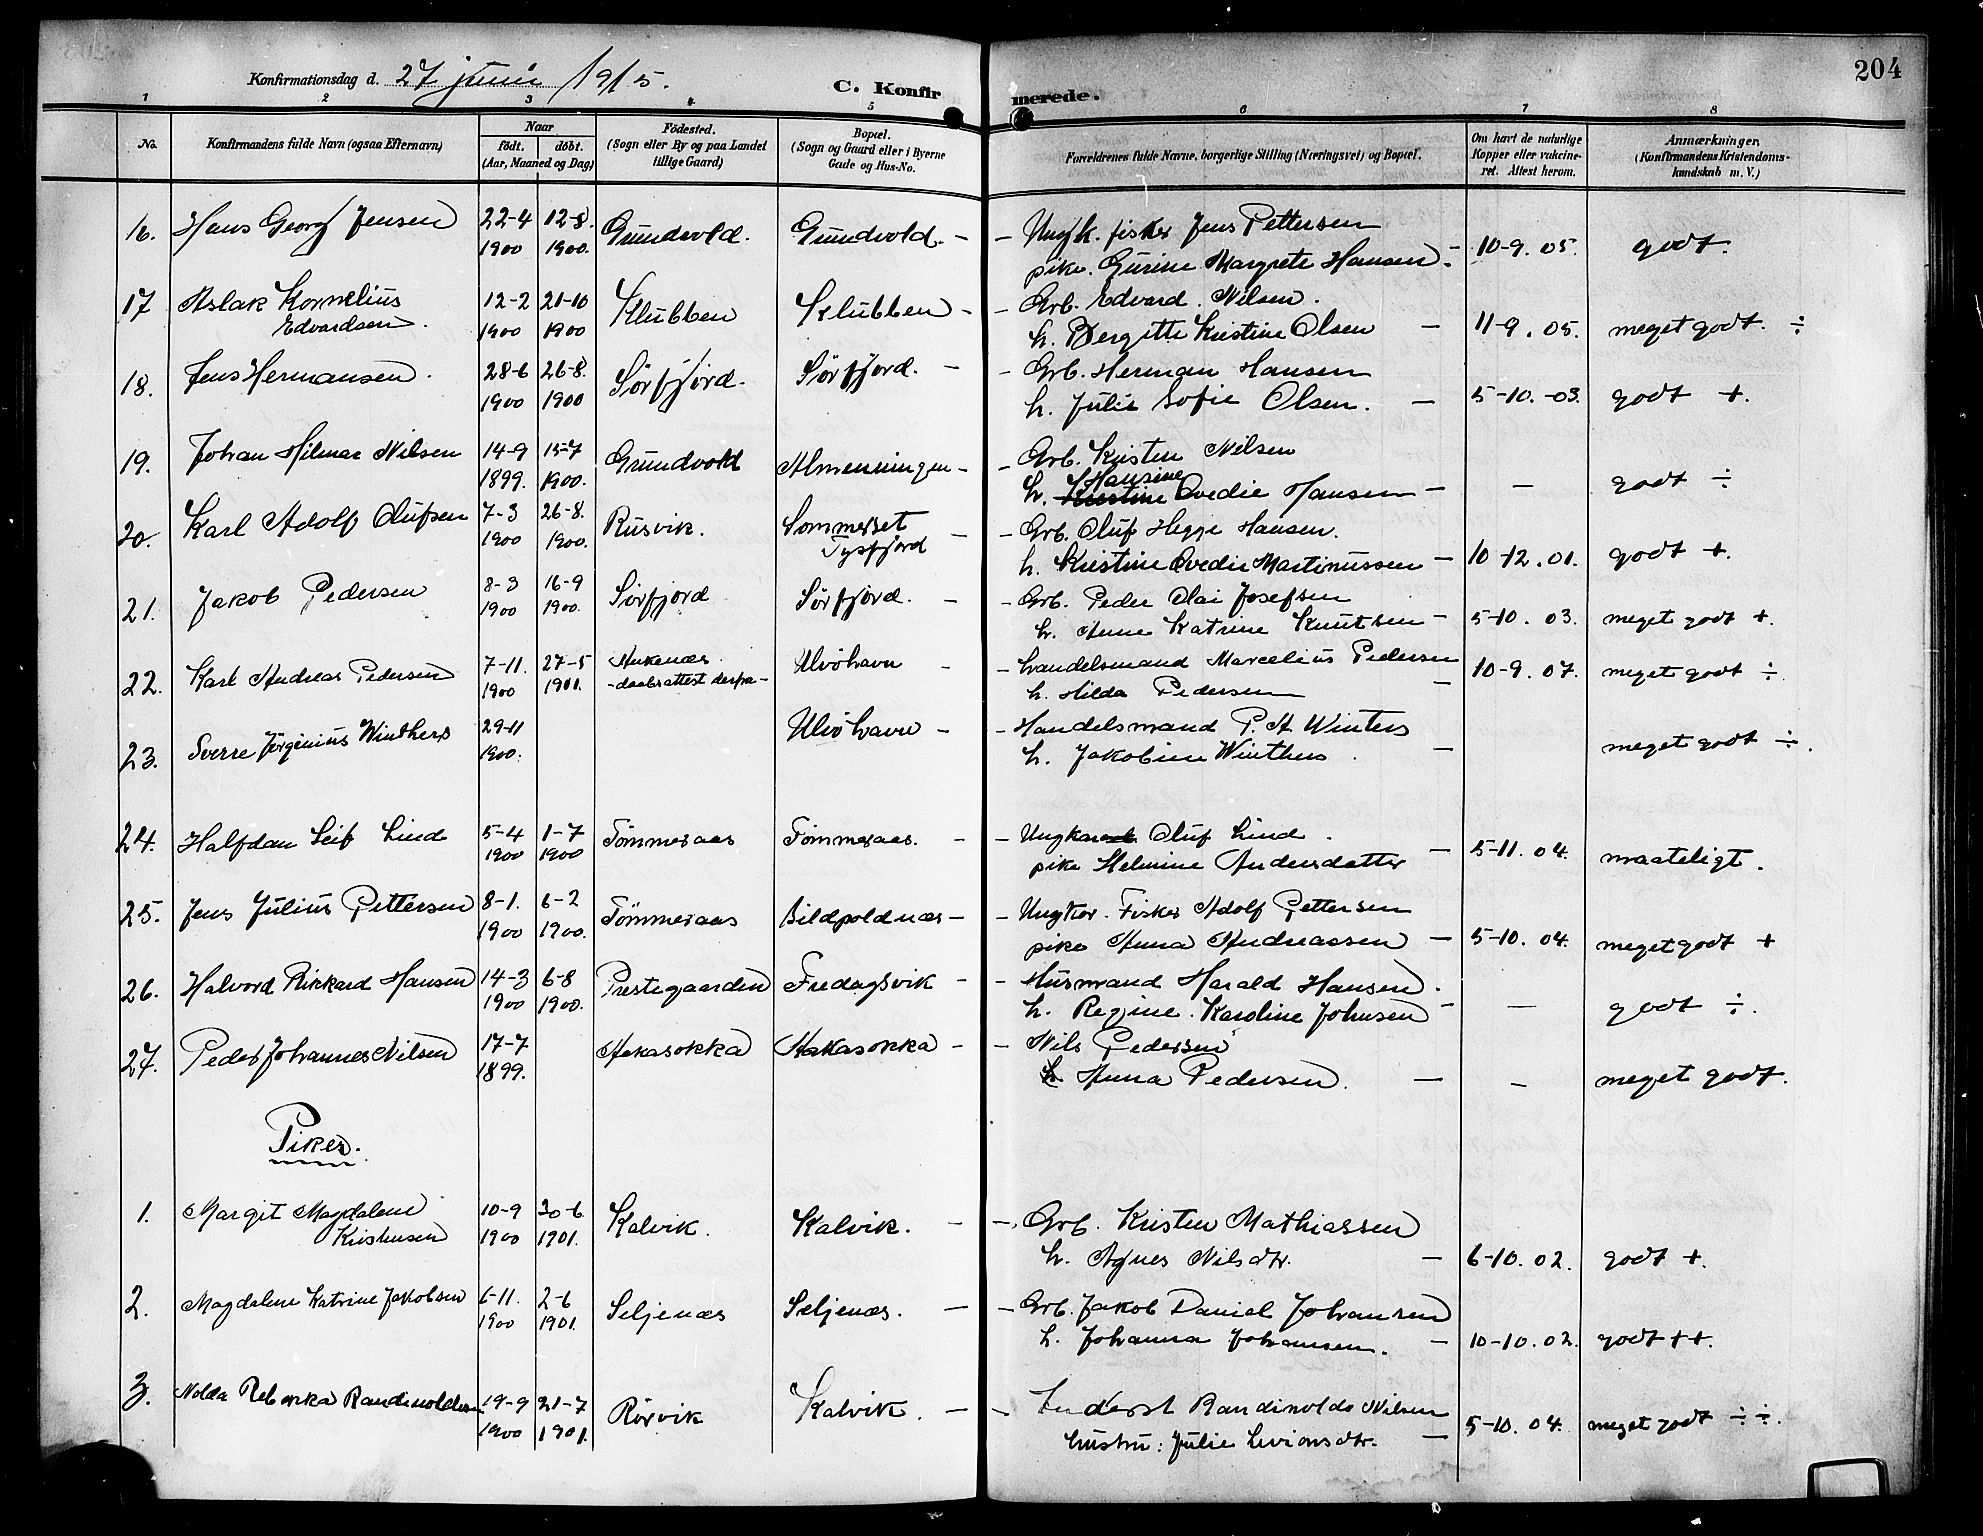 204
Konfirmationsdag d. 27 juni 1915.
C. Konfirmerede.
1 2 3 4 5 6 7 8
No.
Konfirmandens fulde Navn (ogsaa Efternavn)
Naar
födt. döbt.
(Aar, Maaned og Dag)
Födested.
(Sogn eller By og paa Landet
tillige Gaard)
Bopæl.
(Sogn og Gaard eller i Byerne
Gade og Hus-No.
Forældrenes fulde Navne, borgerlige Stilling (Næringsvei) og Bopæl.
Om havt de naturlige
Kopper eller vakcine-
ret. Attest herom.
Anmærkninger.
(Konfirmandens Kristendoms-
kundskab m. V.)
16. Hans Georg Jensen 22-4 1900 12-8. 1900. Grundvold. Grundvold. -
- Ungk. fisker Jens Pettersen
pike. Gurine Margrete Hansen - 10-9. 05. godt.
17 Aslak Kornelius
Edvardsen. 12-2 1900 21-10 1900 Klubben Klubben -
- Grb. Edvard. Nilsen.
h. Bergitte Kristine Olsen - 11-9. 05. meget godt. ÷
18. Jens Hermansen. 28-6 1900 26-8. 1900 Sørfjord. Sørfjord. -
- Grb. Herman Hansen
h. Julie Sofie Olsen. - 5-10.-03. godt +.
19. Johan Hilmar Nilsen 14-9 1899. 15-7 1900. Grundvold Almenningen -
- Grb. Kristen Nilsen
h. Hansine Ovedie Hansen - - godt ÷
20. Karl Adolf Olufsen 7-3 1900 26-8. 1900. Rusvik. Sommerset
Tysfjord -
- Grb. Oluf Hegge Hansen.
h. Kristine Ovedie Martinussen - 10-12. 01. godt +.
21. Jakob Pedersen 8-3 1900 16-9 1900. Sørfjord Sørfjord. -
- Grb. Peder Olai Josefsen
h. Anne Katrine Knutsen - 5-10. 03. meget godt +.
22. Karl Andreas Pedersen 7-11. 1900 27-5 1901. Ankenæs
- daabsattest derfra - Ulvöhavn -
- Handelsmand Marcelius Pedersen
h. Hilda Pedersen - 10-9. 07. meget godt ÷.
23. Sverre Jörginius Winthers 29-11 1900. Ulvöhavn -
- Handelsmand P. A Winters
h. Jakobine Winthers. - meget godt ÷.
24. Halfdan Leif Lind 5-4 1900 1-7 1900 Tömmeraas Tömmeraas. -
- Ungkar Oluf Lind.
pike Helmine Andersdatter - 5-11. 04. maateligt.
25. Jens Julius Pettersen 8-1. 1900 6-2 1900. Tömmeraas Bildpoldnæs -
- Ungkar. Fisker Adolf Pettersen
pike Anna Andreassen - 5-10. 04. meget godt +
26. Halvord Rikkard Hansen 14-3 1900 6-8 1900. Prestegaarden Fredagsvik -
- Husmand Harald Hansen.
h. Regine. Karoline Johnsen - - godt ÷.
27. Peder Johannes Nilsen 17-7 1899. Hakasokka Hakasokka -
- Nils Pedersen
h. Anna Pedersen. - - meget godt.
Piker.
1. Margit Magdalene
Kristensen 10-9 1900 30-6. 1901. Kalvik. Kalvik. -
- Grb. Kristen Mathiassen
h. Agnes Nilsdtr. - 6-10. 02. godt +.
2. Magdalene Katrine Jakobsen 6-11. 1900 2-6 1901. Seljenæs Seljenæs. -
- Grb. Jakob Daniel Johansen
h. Johanna Johansen. - 10-10. 02. godt ++.
3. Nolda Rebekka Randinoldsen 19-9 1900 21-7 1901. Rörvik Kalvik. -
- Inderst Randinolds Nilsen
hustru: Julie Levionsdtr. - 5-10. 04. meget godt ÷ ÷.